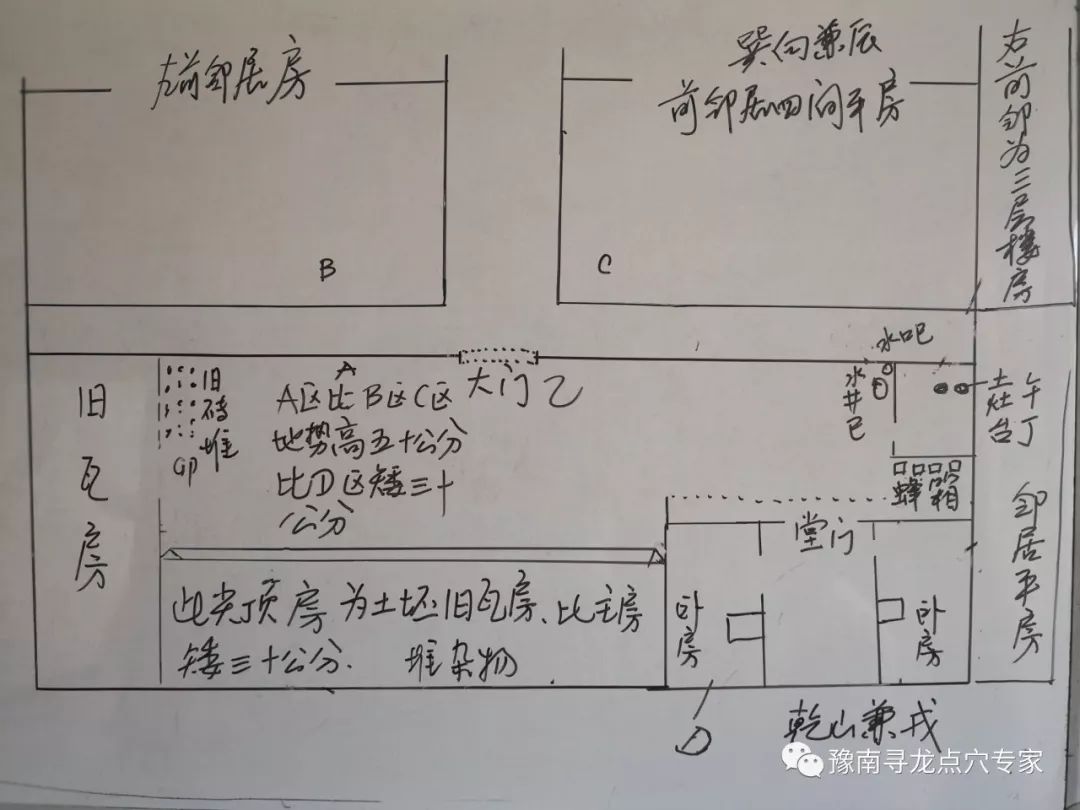 左前邻居房
巽向兼辰
前邻居四间平房
右前邻为三层楼房
B
C
水吧
大门乙
水井巳
土灶台
午丁
旧瓦房
旧砖堆
A
A区比B区C区
地势高五十公分
比D区矮三十
公分
蜂箱
堂门
邻居平房
此尖顶房为土坯旧瓦房、比主房
矮三十公分.堆杂物
卧房
卧房
D
乾山兼戌
豫南寻龙点穴专家